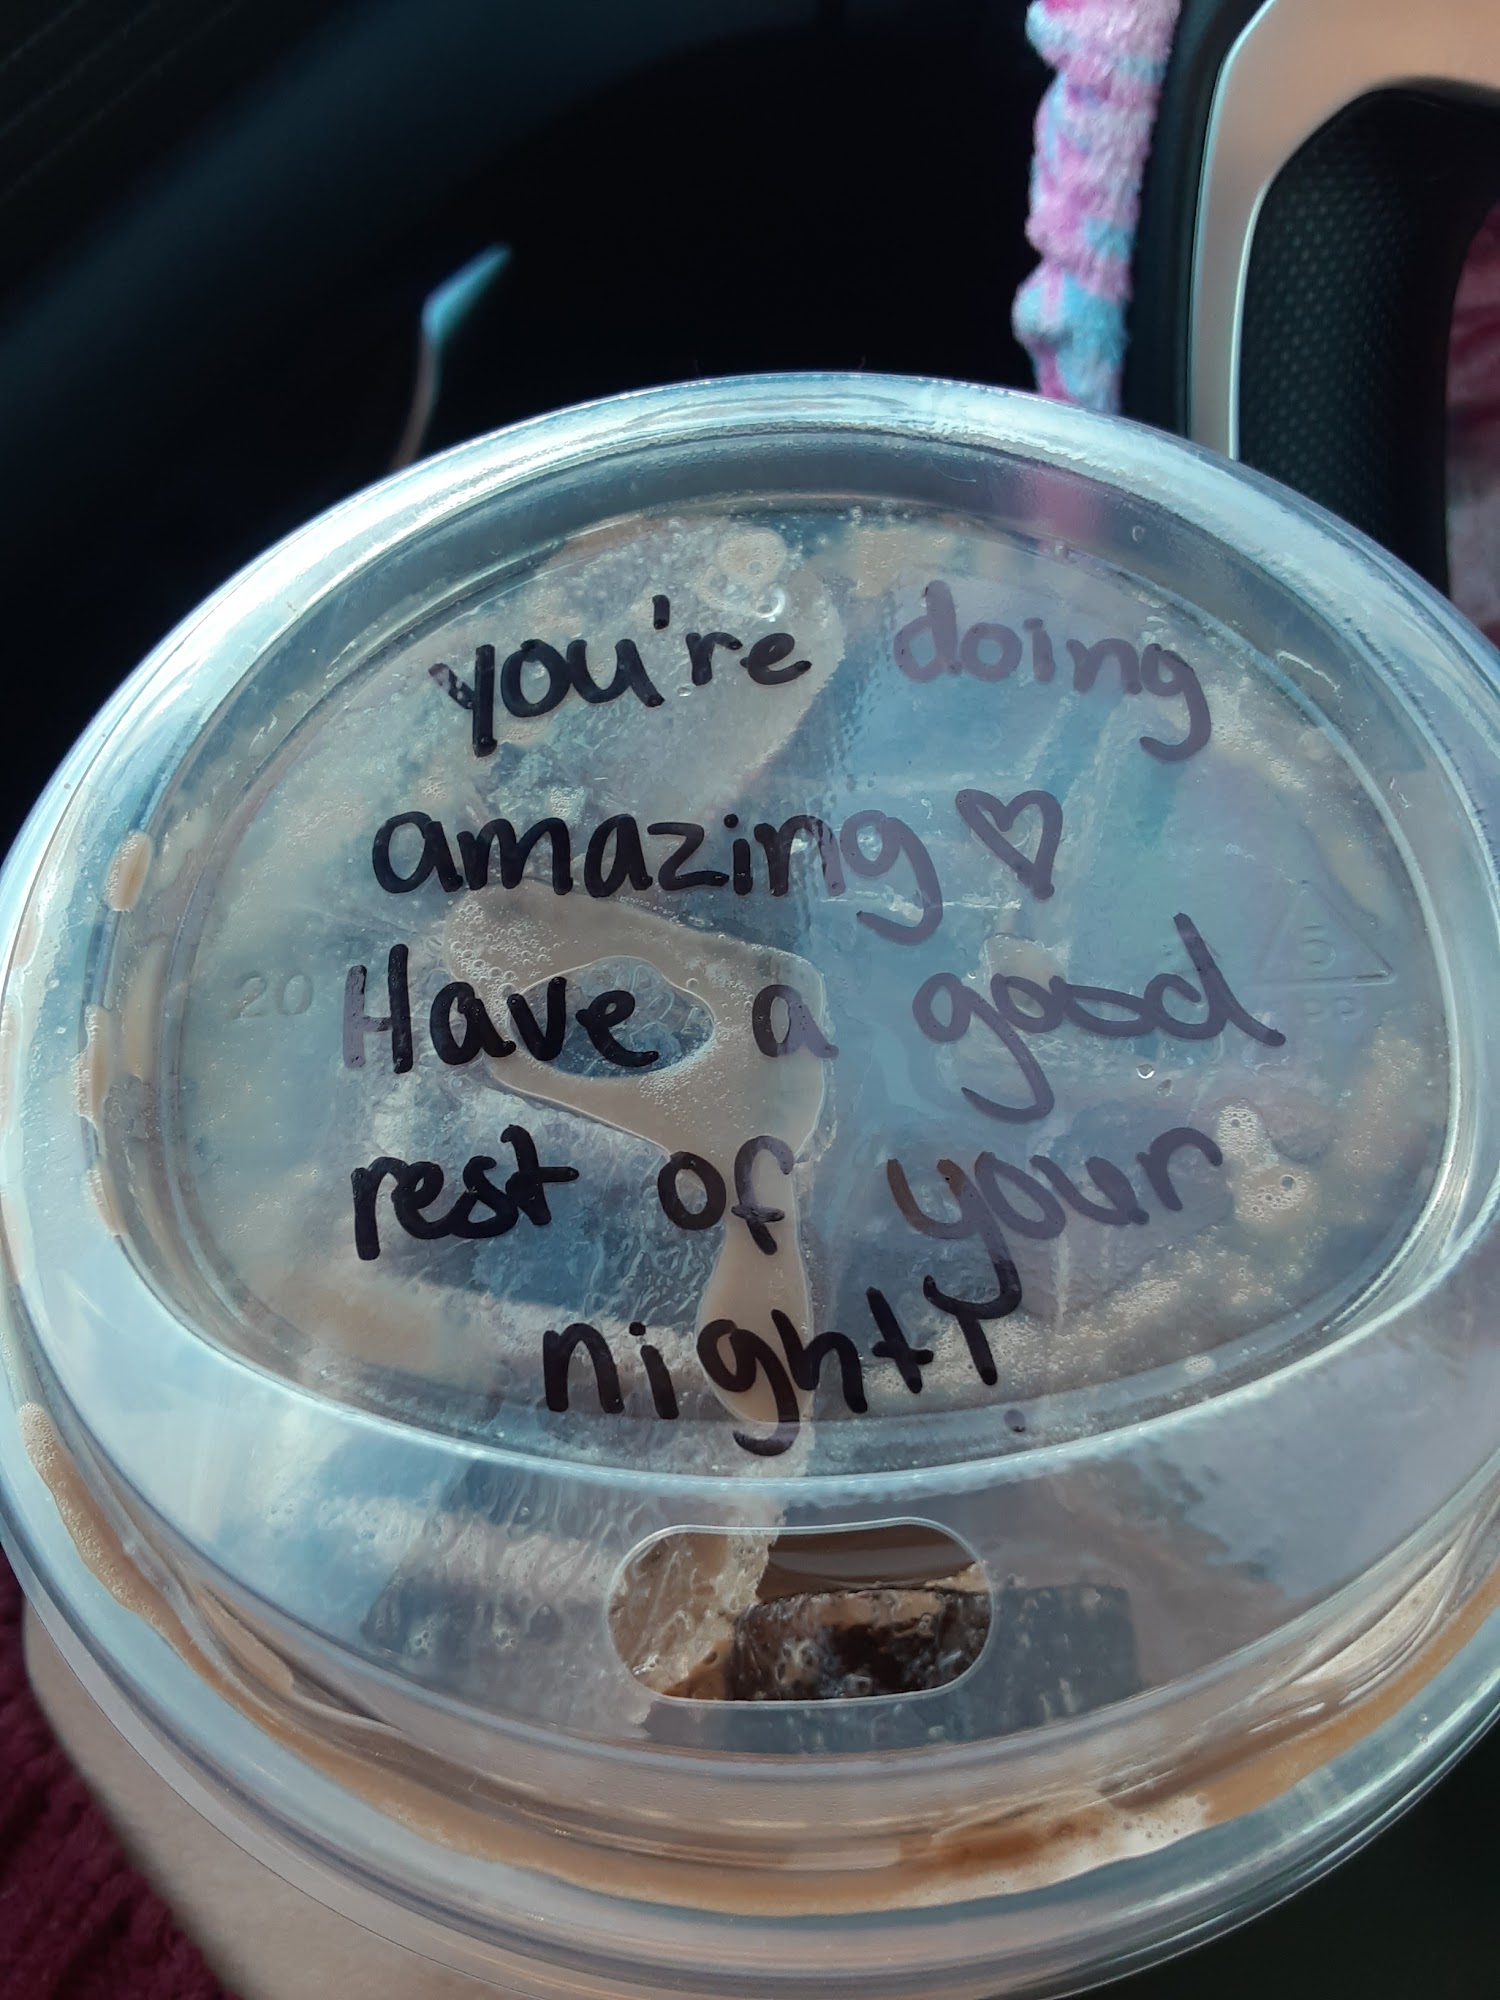 you're doing
amazing ♡
Have a good
rest of your
night!
20
5
PP